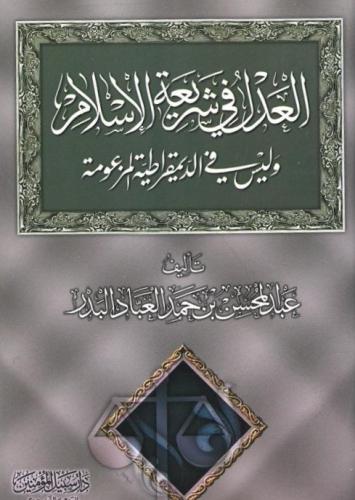 العدل في شريعة الإسلام
وليس في الديمقراطية المزعومة
تأليف
عبد المحسن بن حمد العباد البدر
دار سبيل المؤمنين